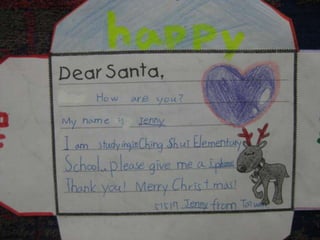 happy
Dear Santa,
How are you?
My name is Jenny
I am studying in Ching Shui Elementary
School, please give me a iphone
Thank you! Merry Christmas!
51517 Jenny from Taiwan